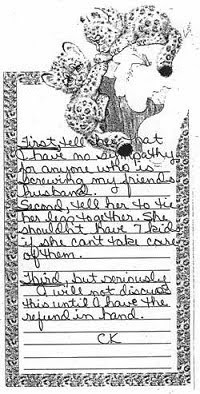 First, tell her that
I have no sympathy
for anyone who is
screwing my friends
husband.
Second, tell her to tie
her legs together. She
shouldn't have 7 kids
if she can't take care
of them.
Third, but seriously
I will not discuss
this until I have the
refund in hand.
CK